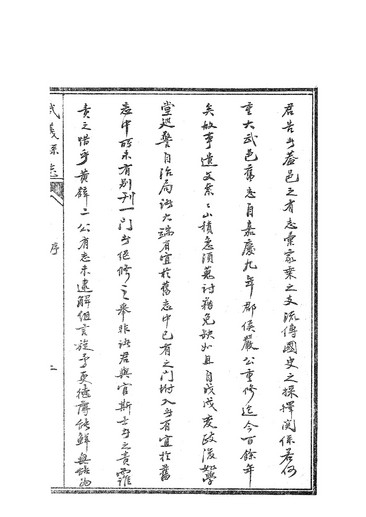 君告予蓋邑之有志彙家乘之支流傳國史之採擇関係若何
重大武邑舊志自嘉慶九年郡侯嚴公重修迄今百餘年
矣故事遺文案山積急須蒐討務免缺如且自戊戌變政後如學
堂巡警自治局諸大端有宜於舊志中已有之门附入者有宜於舊
志中所未有别刊一门者継修之舉非諸君與官斯土者之責
責之惜乎黄韓二公有志未逮解組言旋予更德薄能鮮無
武義縣志
序